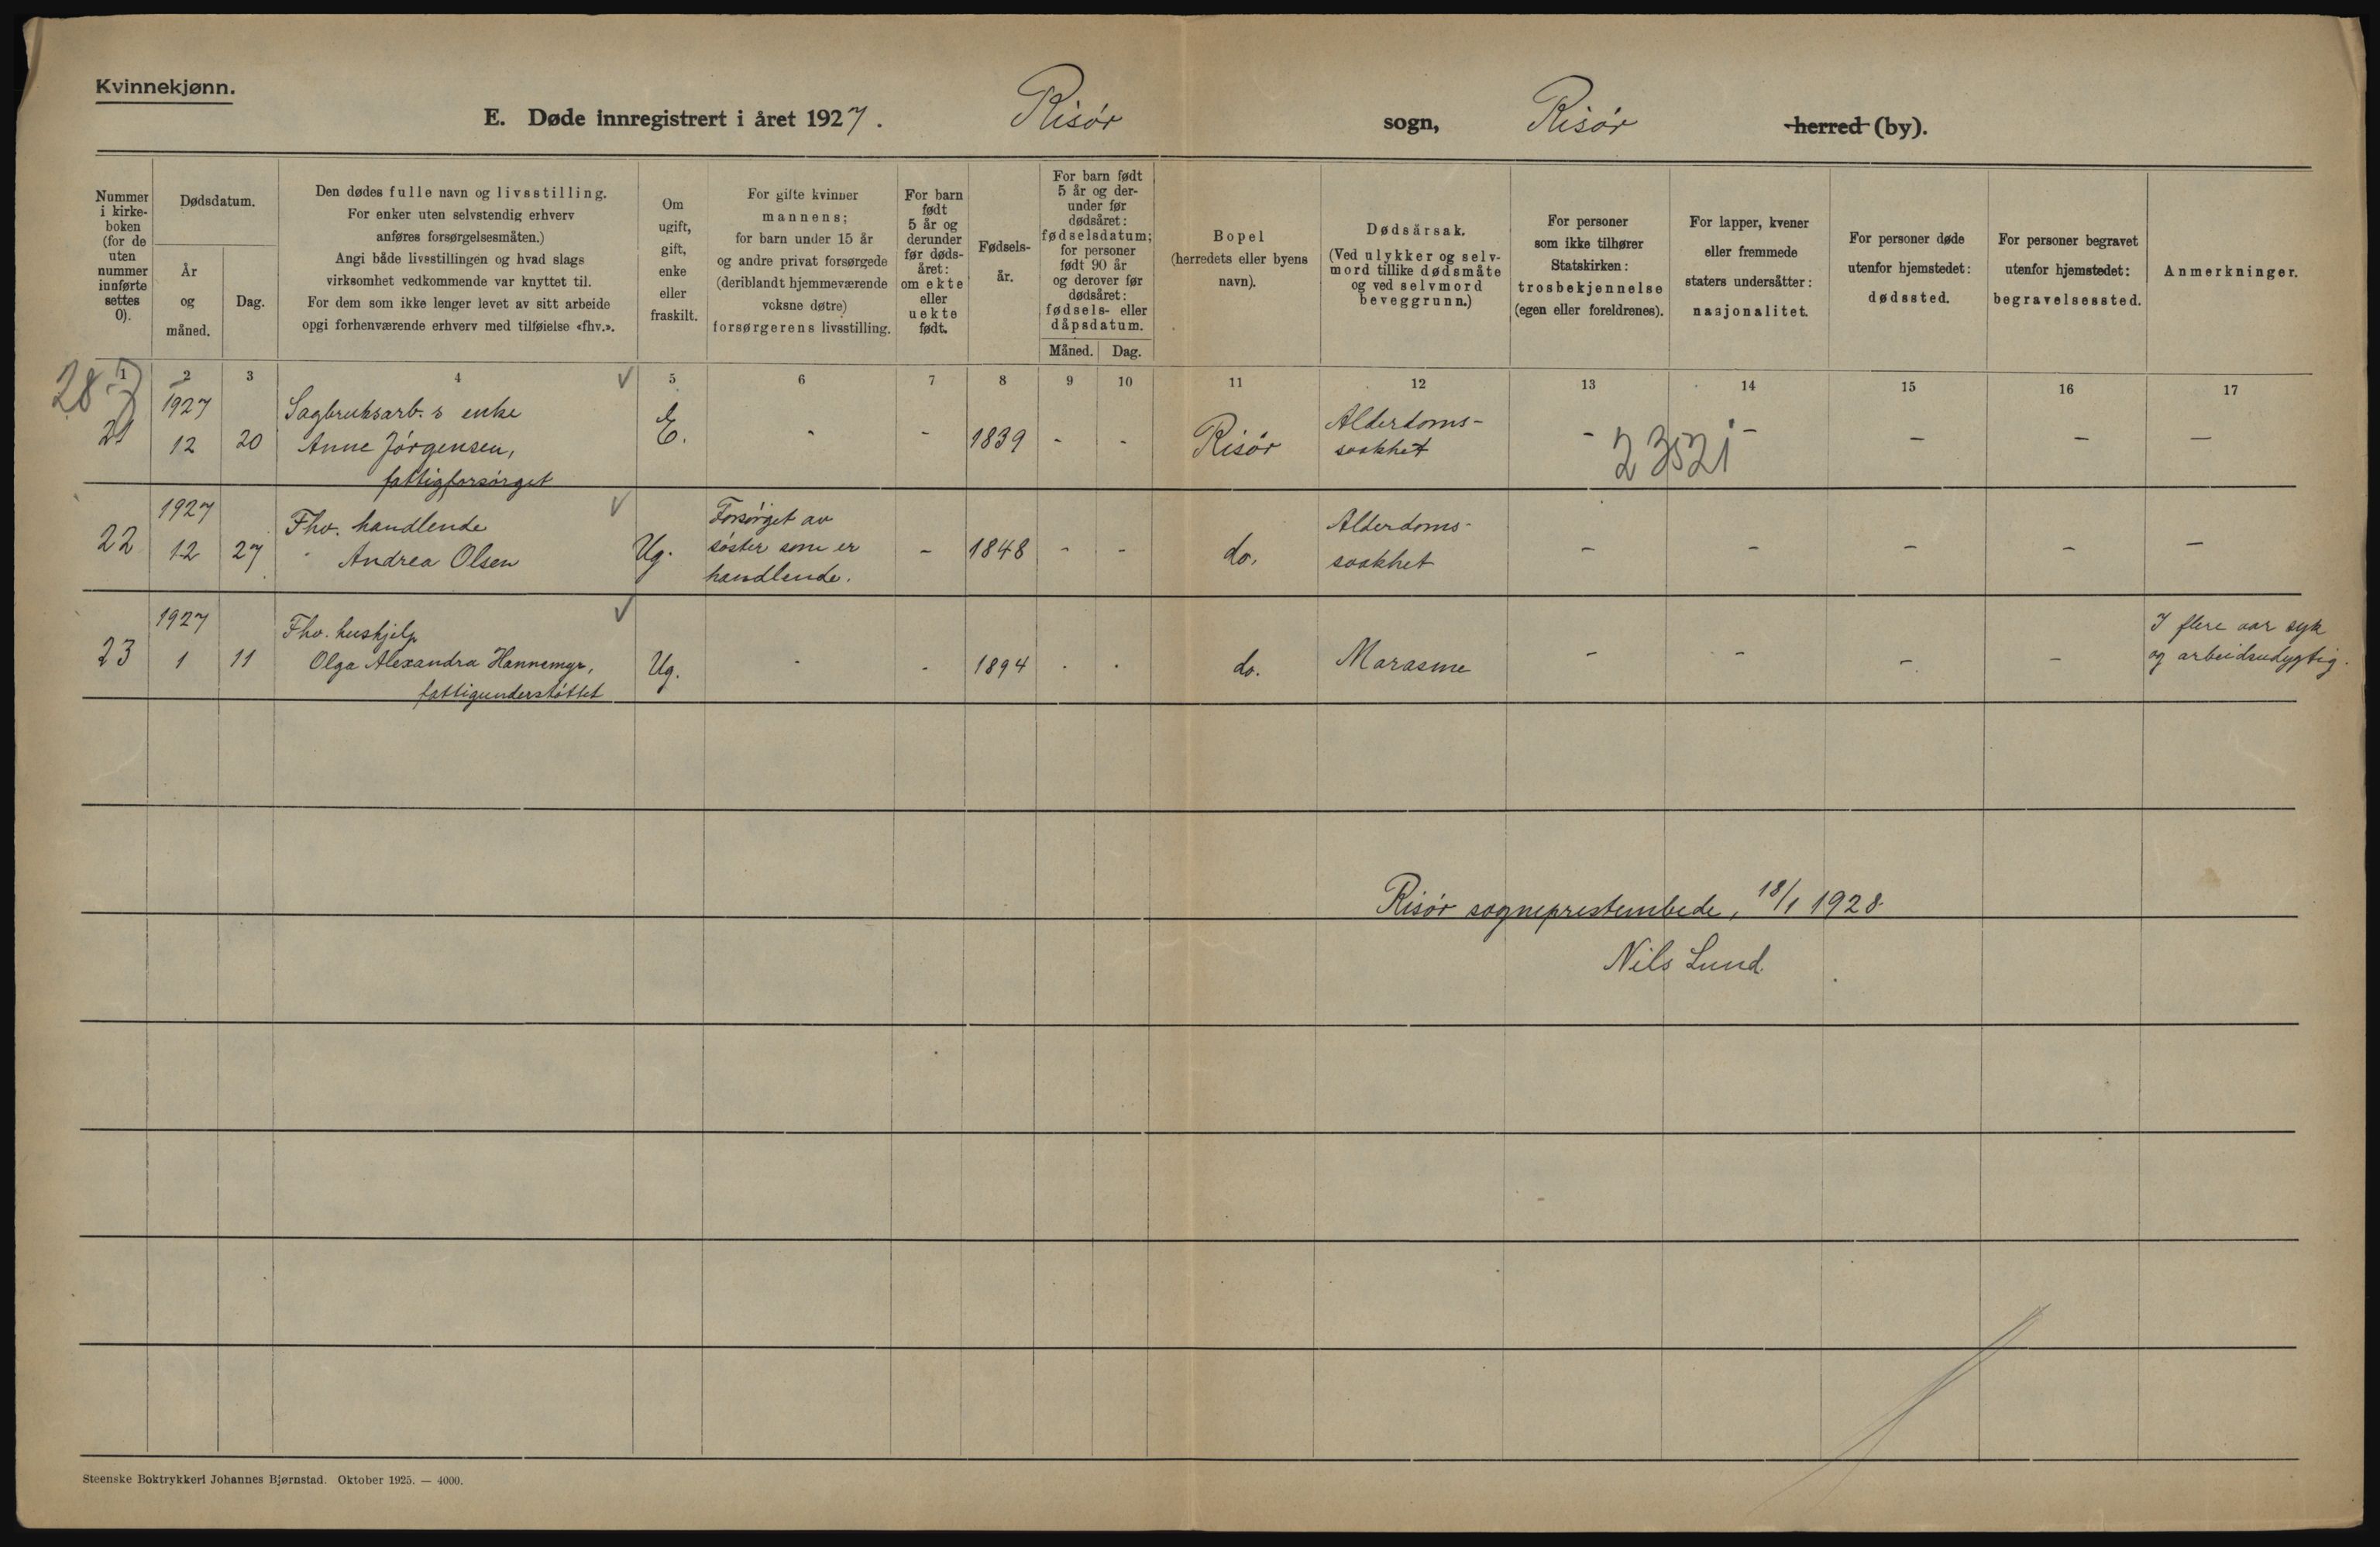 Kvinnekjønn.
E. Døde innregistrert i året 1927. Risør sogn, Risør herred (by).
Nummer i kirke- boken (for de uten nummer innførte settes 0).
Dødsdatum.
År og måned.
Dag.
Den dødes fulle navn og livsstilling.
For enker uten selvstendig erhverv
anføres forsørgelsesmåten.)
Angi både livsstillingen og hvad slags
virksomhet vedkommende var knyttet til.
For dem som ikke lenger levet av sitt arbeide
opgi forhenværende erhverv med tilføielse «fhv.».
Om ugift, gift, enke eller fraskilt.
For gifte kvinner
mannens;
for barn under 15 år
og andre privat forsørgede
(deriblandt hjemmeværende
voksne døtre)
forsørgerens livsstilling.
For barn født 5 år og derunder før døds- året: om ekte eller uekte født.
Fødsels- år.
For barn født 5 år og der- under før dødsåret: fødselsdatum; for personer født 90 år og derover før dødsåret: fødsels- eller dåpsdatum.
Måned. Dag.
Bopel
(herredets eller byens
navn).
Dødsårsak.
(Ved ulykker og selv-
mord tillike dødsmåte
og ved selvmord
beveggrunn.)
For personer
som ikke tilhører
Statskirken:
trosbekjennelse
(egen eller foreldrenes).
For lapper, kvener
eller fremmede
staters undersåtter:
nasjonalitet.
For personer døde
utenfor hjemstedet:
dødssted.
For personer begravet
utenfor hjemstedet:
begravelsessted.
Anmerkninger.
1 2 3 4 5 6 7 8 9 10 11 12 13 14 15 16 17
28-7
21 1927 12 20 Sagbruksarb.s enke
Anne Jørgensen,
fattigforsørget
E. - - 1839 - - Risør Alderdoms-
svakhet - - - - -
2352i
22 1927 12 27 Fhv. handlende
Andrea Olsen
Ug. Forsørget av
søster som er
handlende.
- 1848 - - do. Alderdoms-
svakhet - - - - -
23 1927 1 11 Fhv. hushjelp
Olga Alexandra Hannemyr,
fattigunderstøttet
Ug. - - 1894 - - do. Marasme - - - -
I flere aar syk
og arbeidsudygtig.
Risør sogneprestembede, 18/1 1928.
Nils Lund.
Steenske Boktrykkeri Johannes Bjørnstad. Oktober 1925. — 4000.